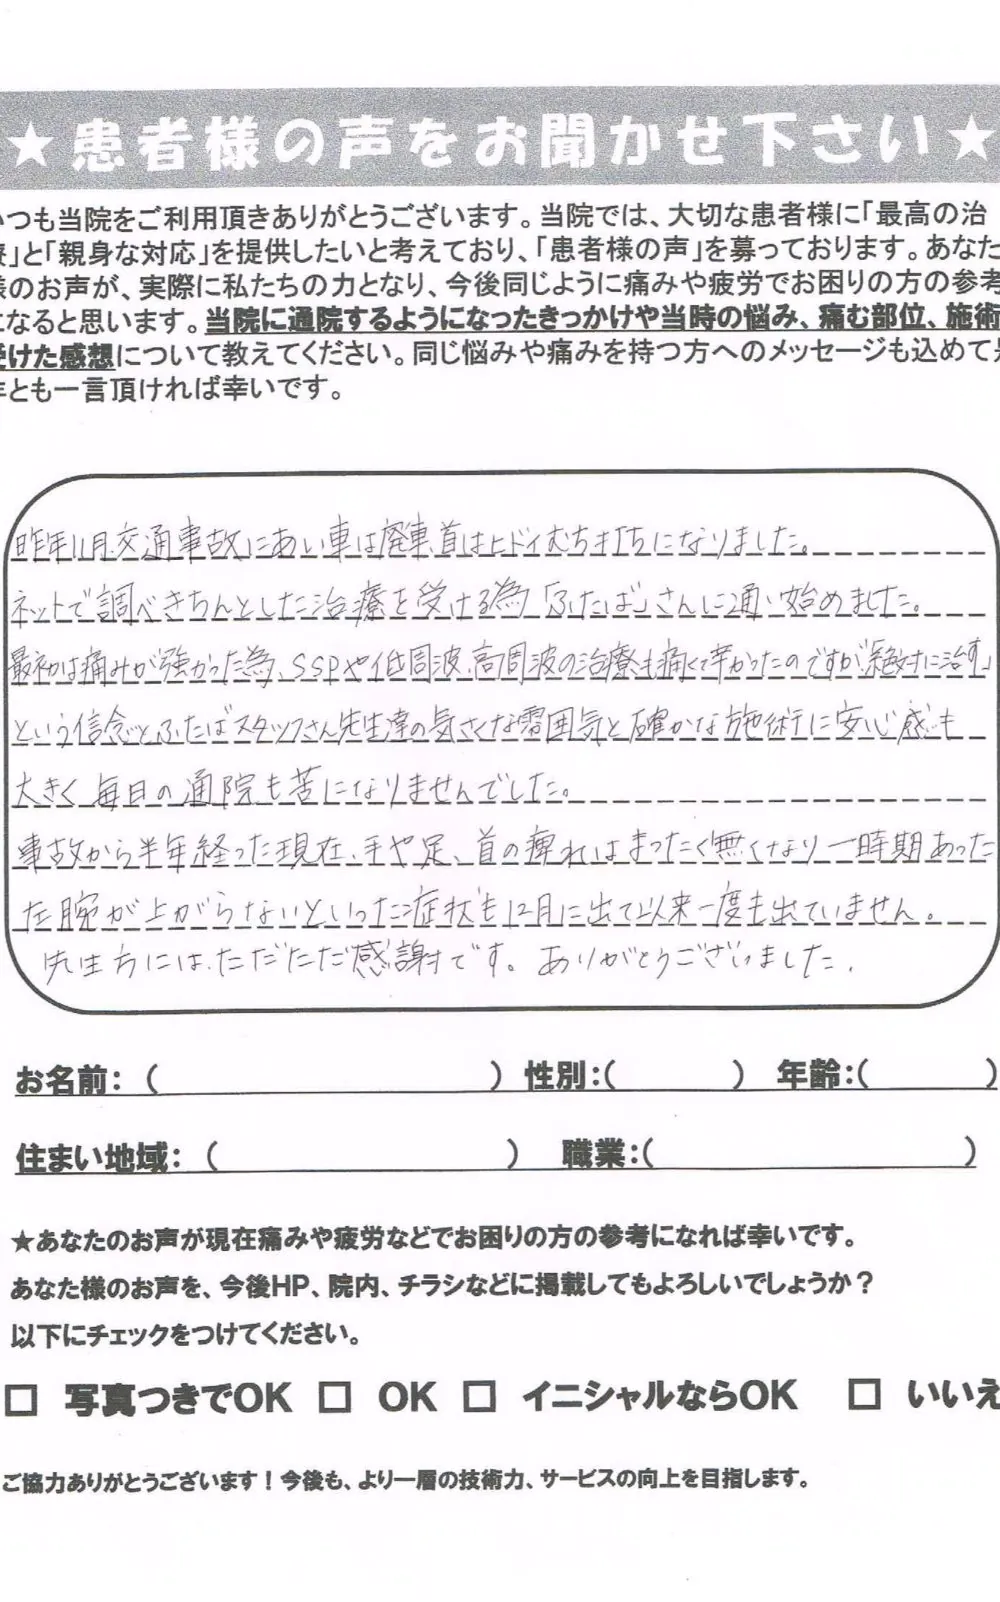 ★患者様の声をお聞かせ下さい★
いつも当院をご利用頂きありがとうございます。当院では、大切な患者様に「最高の治
療」と「親身な対応」を提供したいと考えており、「患者様の声」を募っております。あなた
様のお声が、実際に私たちの力となり、今後同じように痛みや疲労でお困りの方の参考
になると思います。当院に通院するようになったきっかけや当時の悩み、痛む部位、施術
受けた感想について教えてください。同じ悩みや痛みを持つ方へのメッセージも込めて是
非とも一言頂ければ幸いです。
昨年11月、交通事故にあい車は廃車、首はヒドイむち打ちになりました。
ネットで調べきちんとした治療を受ける為「ふたば」さんに通い始めました。
最初は痛みが強かった為、SSPや低周波、高周波の治療も痛くて辛かったのですが「絶対に治す」
という信念とふたばスタッフさん先生達の気さくな雰囲気と確かな施術に安心感も
大きく毎日の通院も苦になりませんでした。
事故から半年経った現在、手や足、首の痺れはまったく無くなり一時期あった
左腕が上がらないといった症状も12月に出て以来一度も出ていません。
先生方には、ただただ感謝です。ありがとうございました。
お名前:（　　　　　　　　　）性別:（　　　）年齢:（　　　）
住まい地域:（　　　　　　　　）職業:（　　　　　　　　）
★あなたのお声が現在痛みや疲労などでお困りの方の参考になれば幸いです。
あなた様のお声を、今後HP、院内、チラシなどに掲載してもよろしいでしょうか？
以下にチェックをつけてください。
□ 写真つきでOK □ OK □ イニシャルならOK □ いいえ
ご協力ありがとうございます！今後も、より一層の技術力、サービスの向上を目指します。